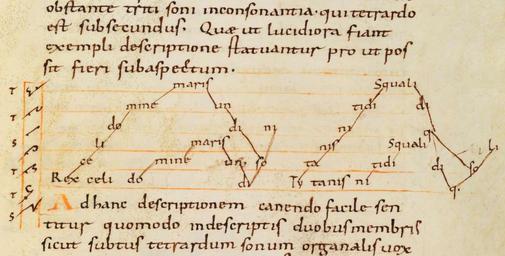 obstante triti soni inconsonantia · qui tetrardo
est subsecundus · Quæ ut lucidiora fiant
exempli descriptione statuantur pro ut pos
sit fieri sub aspectum ·
maris Squali
mine un tidi di
do di ni ni
li maris nis Squali
ce mine un so ta tidi di so li
Rex celi do di Ty tanis ni q.
Ad hanc descriptionem canendo facile sen
titur quomodo in descriptis duobus membris
sicut subtus tetrardum sonum organalis vox